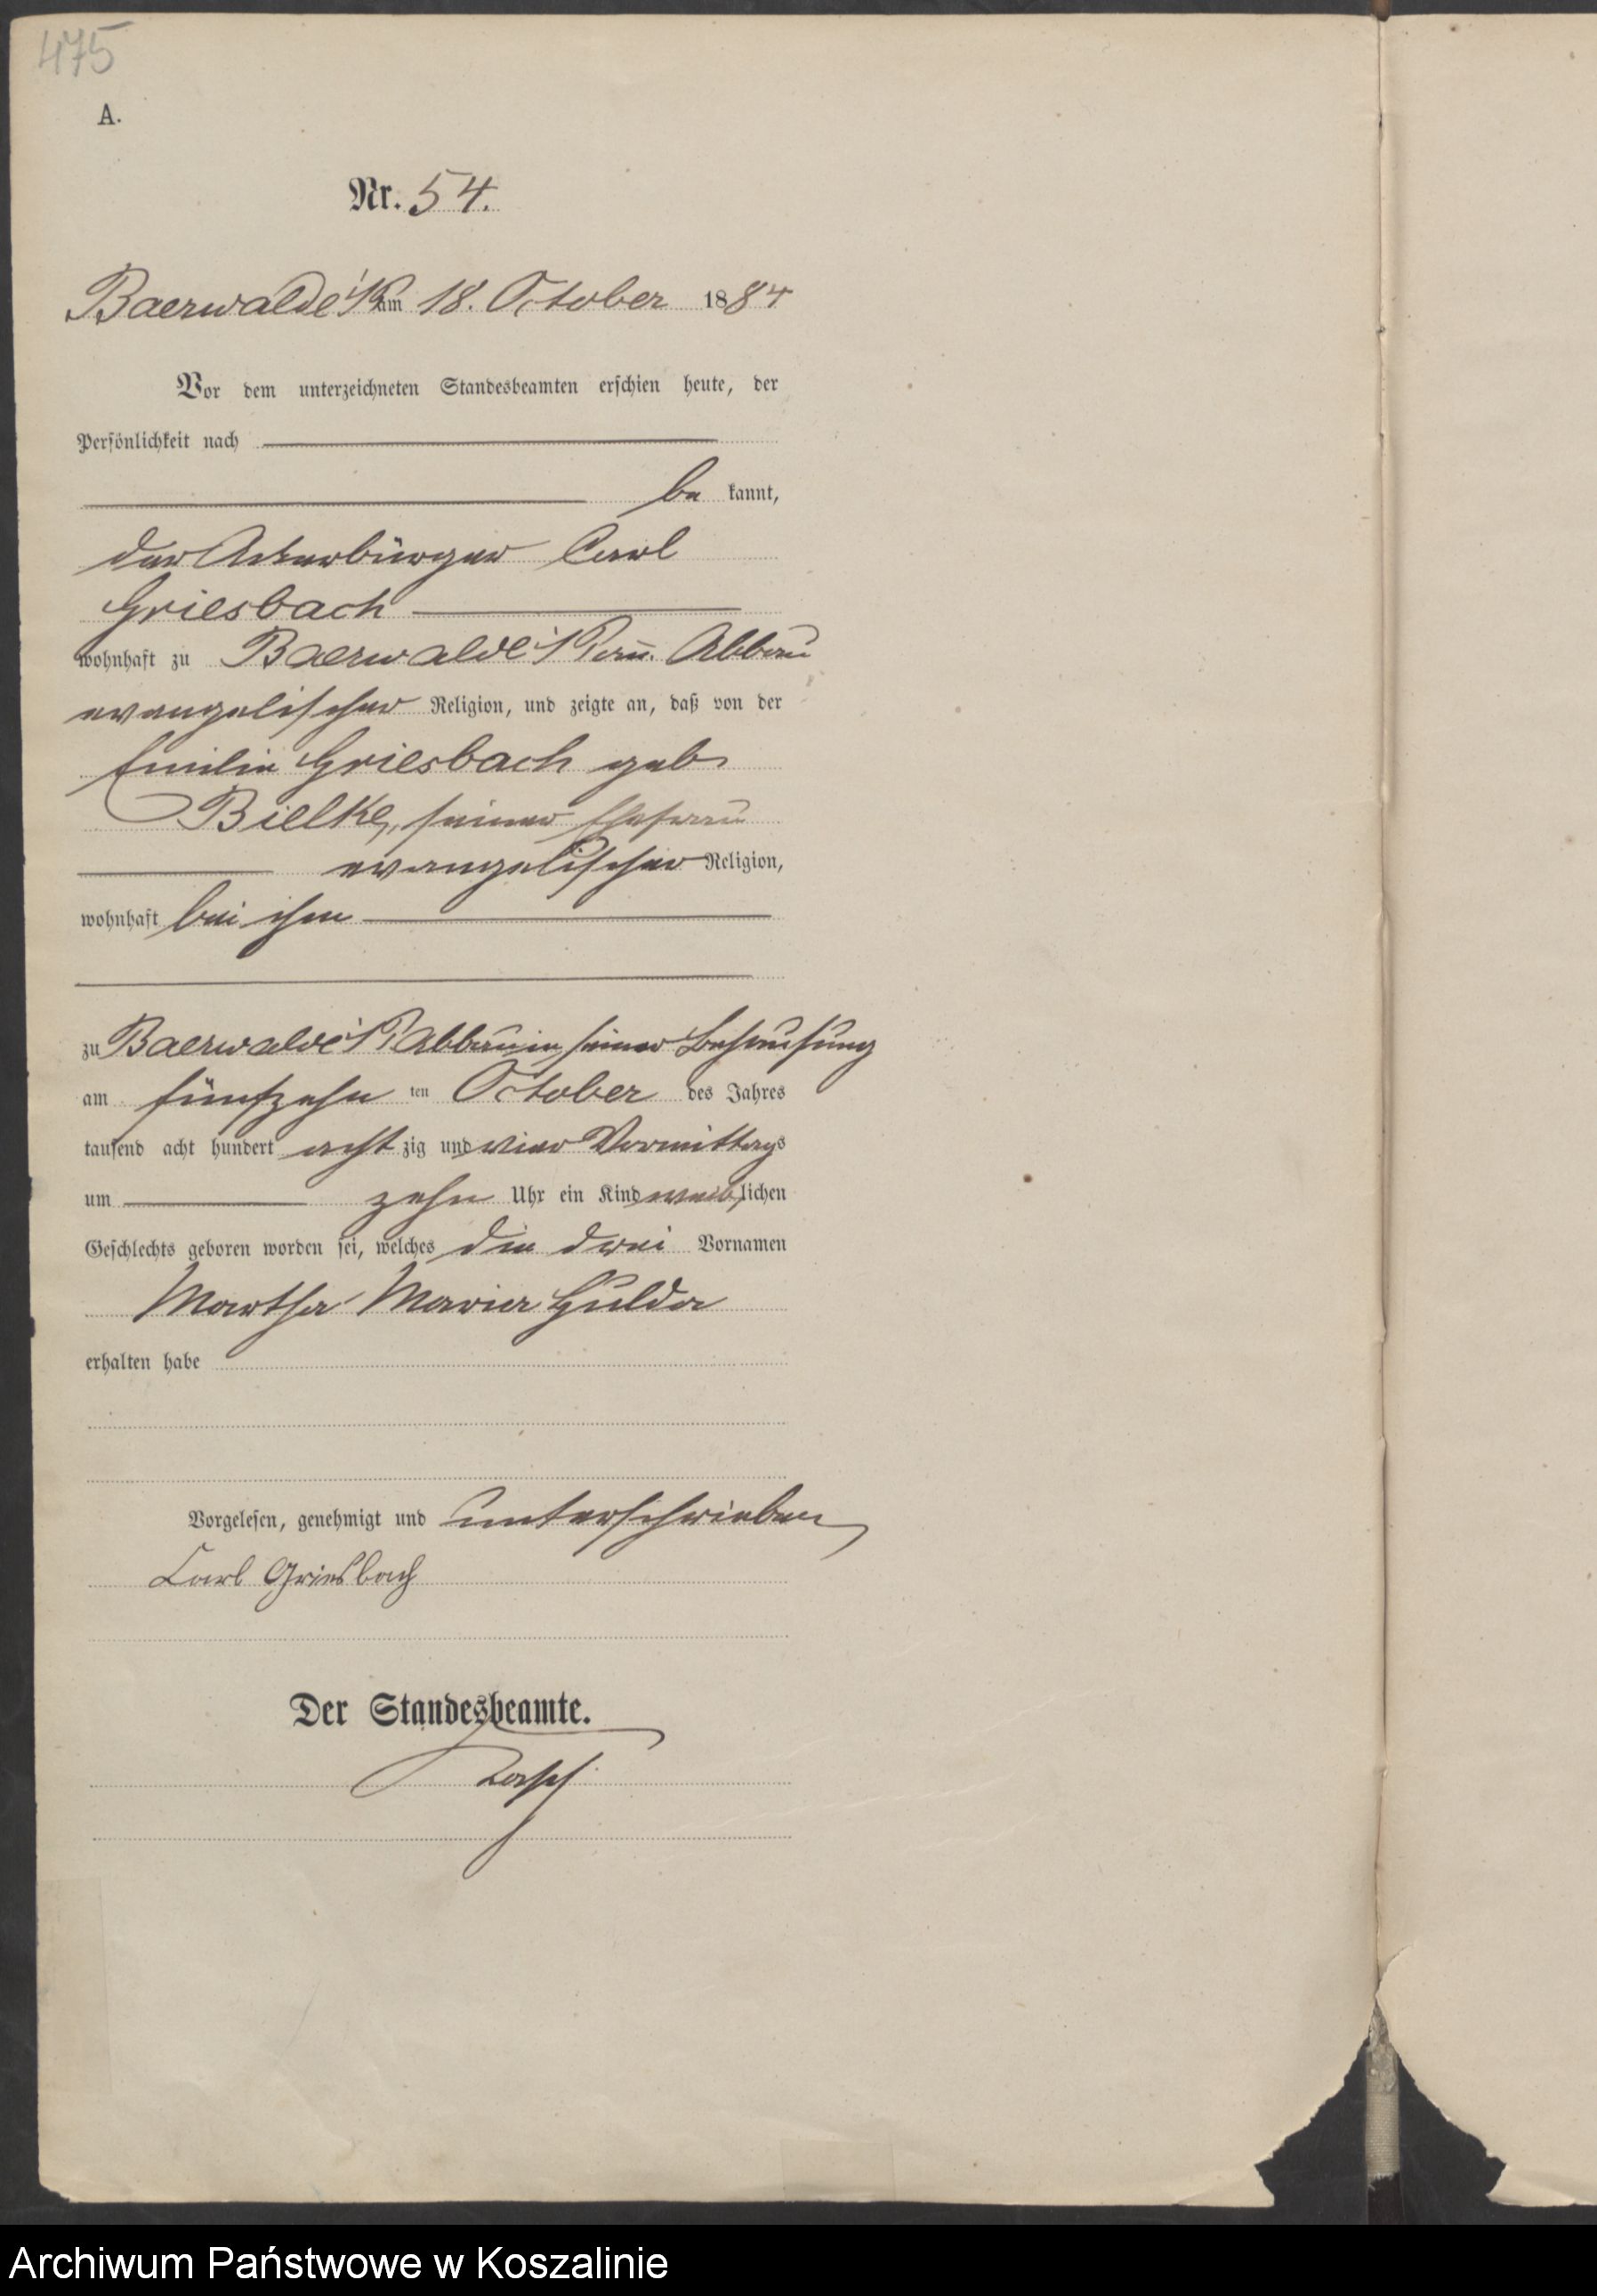 475
A.
Nr. 54.
Baerwalde i/P. am 18. October 1884
Vor dem unterzeichneten Standesbeamten erschien heute, der
Persönlichkeit nach
be kannt,
der Ackerbürger Carl
Griesbach
wohnhaft zu Baerwalde i/Pom. Abbau
evangelischer Religion, und zeigte an, daß von der
Emilie Griesbach geb
Bielke, seiner Ehefrau
evangelischer Religion,
wohnhaft bei ihm
zu Baerwalde i/P Abbau in seiner Behausung
am fünfzehn ten October des Jahres
tausend acht hundert acht zig und vier Vormittags
um zehn Uhr ein Kind weiblichen
Geschlechts geboren worden sei, welches die drei Vornamen
Martha Marie Hulda
erhalten habe
Vorgelesen, genehmigt und unterschrieben
Carl Griesbach
Der Standesbeamte.
Archiwum Państwowe w Koszalinie